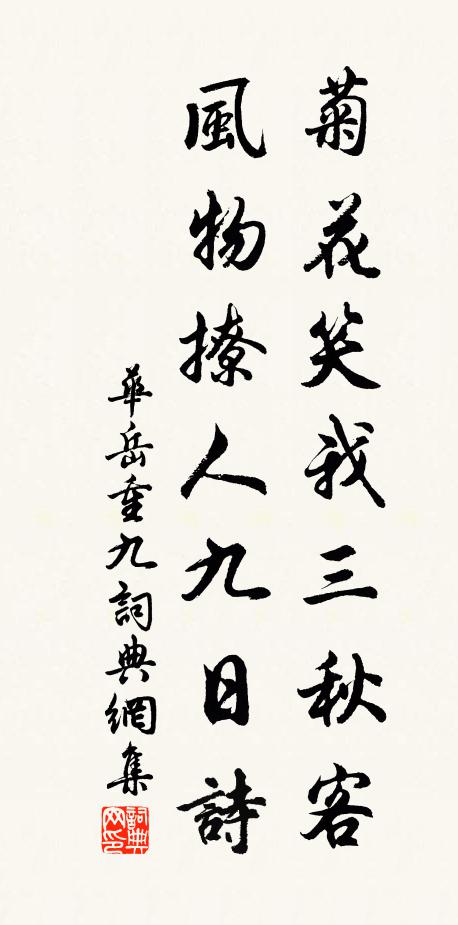 菊花笑我三秋客
風物撩人九日詩
華岳重九詞典網集
詞典網印